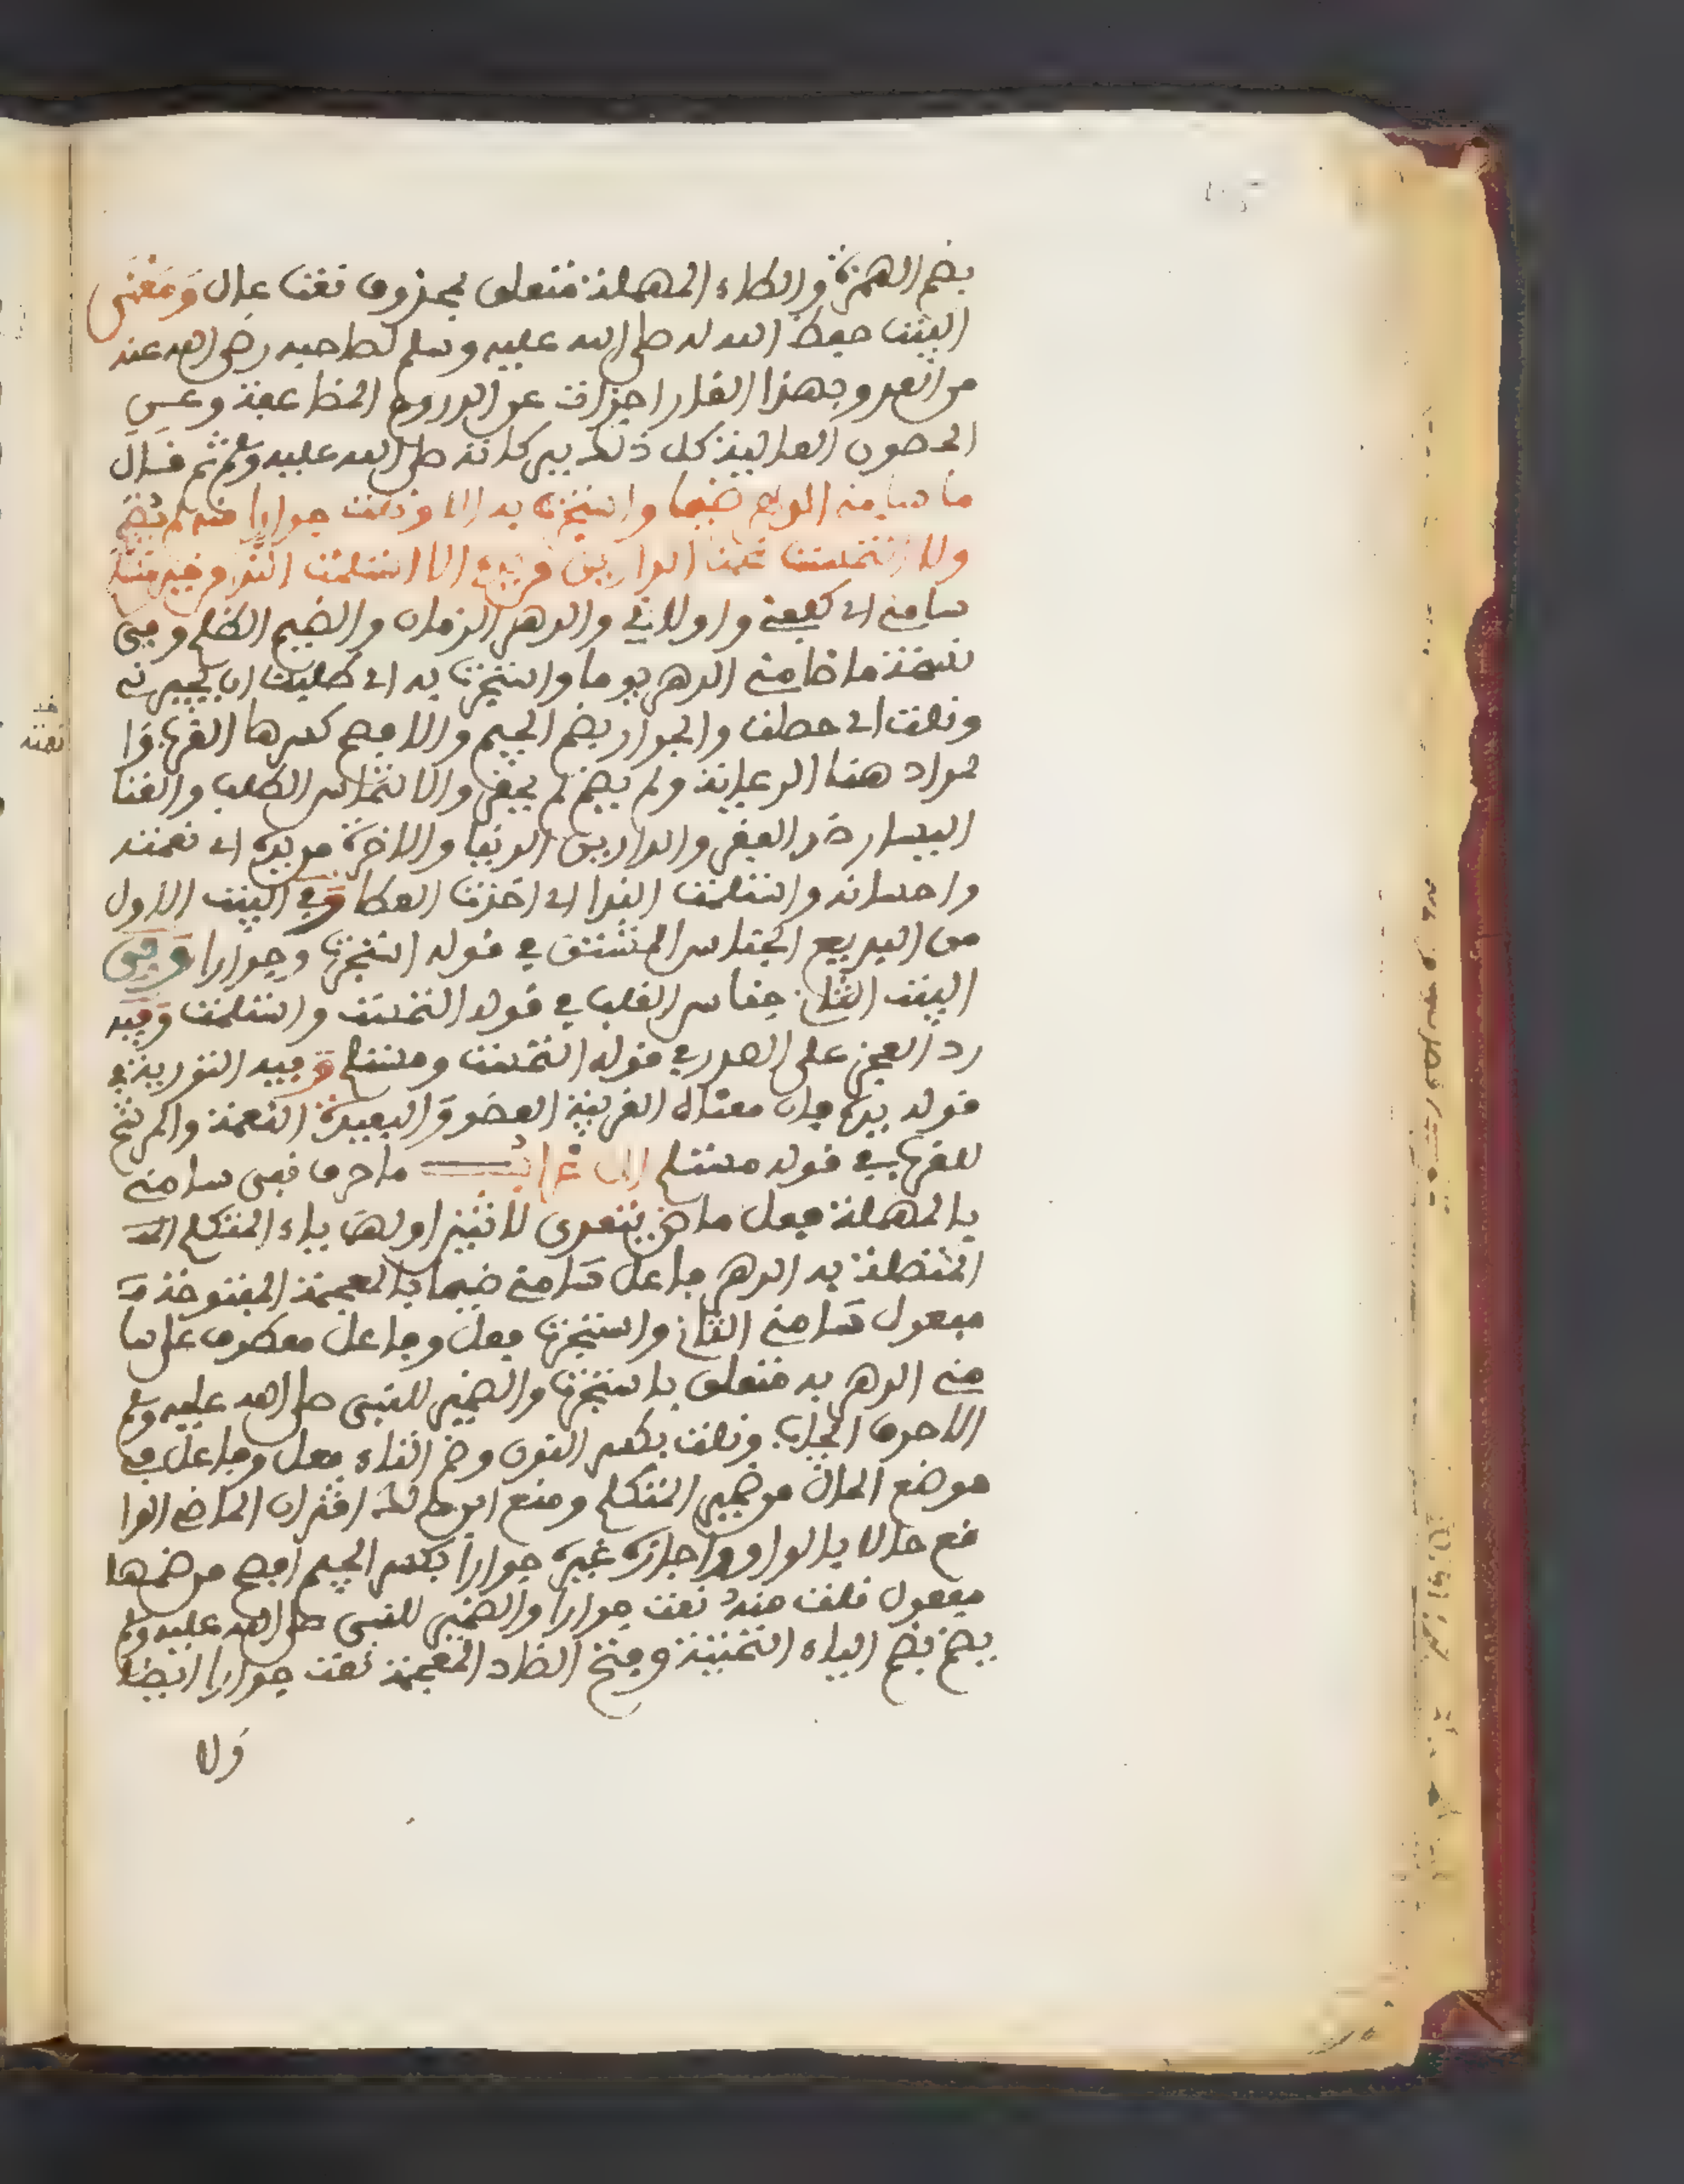 بضم الهمزة والطاء المهملة متعلق بمحذوف نعت عال ومعنى
البيت حفظ الله له صلى الله عليه وسلم لصاحبه رضى الله عنه
من العدو بهذا الغار اجزات عن الدروع المضاعفة وعن
الحصون العالية كل ذلك ببركاته صلى الله عليه وسلم ثم قال
ما سامنى الدهر ضيما واستجرت به الا ونلت جوارا منه لم يضم
ولا التمست غنى الدارين من يده الا استلمت الندى من خير مستلم
سامنى اى كلفنى واولانى والدهر الزمان والضيم الظلم وفى
نسخة ما ضامنى الدهر يوما واستجرت به اى طلبت ان يجيرنى
ونلت اى حصلت والجوار بضم الجيم والافصح كسرها القرب وا
لمراد هنا الرعاية ولم يضم لم يحقر والالتماس الطلب والغنا
اليسار ضد الفقر والدارين الدنيا والاخرة من يده اى نعمته
واحسانه واستلمت الندا اى اخذت العطا وفى البيت الاول
من البديع الجناس المشتق فى قوله استجرت وجوارا وفى
البيت الثانى جناس القلب فى قوله التمست واستلمت وفيه
رد العجز على الصدر فى قوله التمست ومستلم وفيه التورية فى
قوله يده فان معناه القريبة العضو والبعيدة النعمة والمرشح
للقريب فى قوله مستلم الاعراب ما حرف نفى سامنى
بالمهملة فعل ماض يتعدى لاثنين اولهما ياء المتكلم
المتصلة به الدهر فاعل سامنى ضيما بالمعجمة المفتوحة
مفعول سامنى الثانى واستجرت فعل وفاعل معطوف على سا
منى الدهر به متعلق باستجرت والضمير للنبى صلى الله عليه وسلم
الا حرف ايجاب ونلت بكسر النون وضم التاء فعل وفاعل فى
موضع الحال من ضمير المتكلم ومنع ابن مالك اقتران الماضى الوا
قع حالا بالواو واجازه غيره جوارا بكسر الجيم افصح من ضمها
مفعول نلت منه نعت جوارا والضمير للنبى صلى الله عليه وسلم
يضم بضم الياء التحتية وفتح الضاد المعجمة نعت جوارا ايضا
ولا